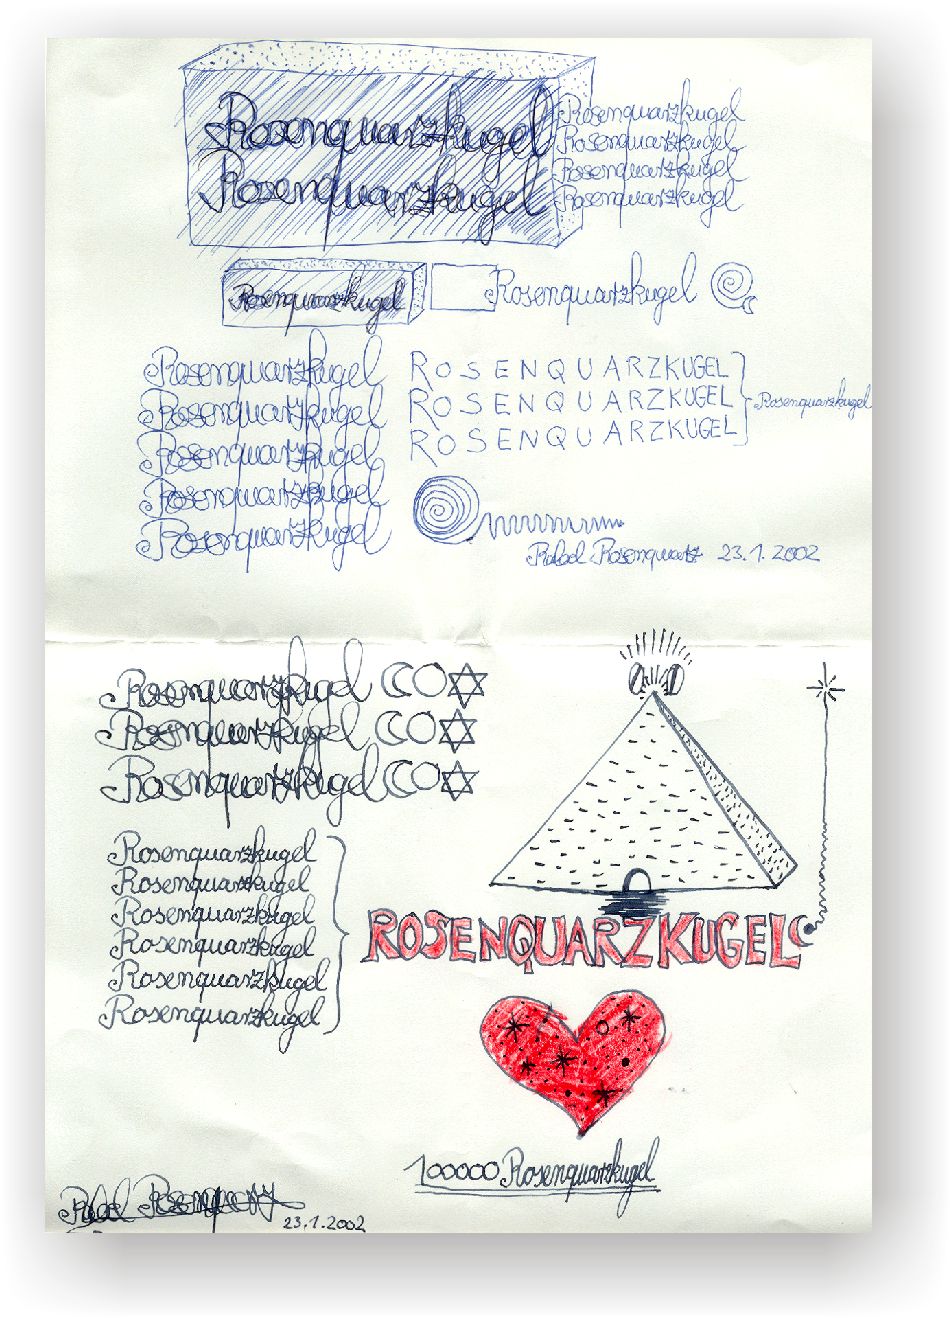 Rosenquarzkugel
Rosenquarzkugel
Rosenquarzkugel
Rosenquarzkugel
Rosenquarzkugel
Rosenquarzkugel
Rosenquarzkugel
Rosenquarzkugel
Rosenquarzkugel
Rosenquarzkugel
Rosenquarzkugel
Rosenquarzkugel
Rosenquarzkugel
ROSENQUARZKUGEL
ROSENQUARZKUGEL
ROSENQUARZKUGEL
Rosenquarzkugel
Rosenquarz 23.1.2002
Rosenquarzkugel
Rosenquarzkugel
Rosenquarzkugel
Rosenquarzkugel
Rosenquarzkugel
Rosenquarzkugel
Rosenquarzkugel
Rosenquarzkugel
Rosenquarzkugel
ROSENQUARZKUGEL
100000 Rosenquarzkugel
Rosenquarz 23.1.2002